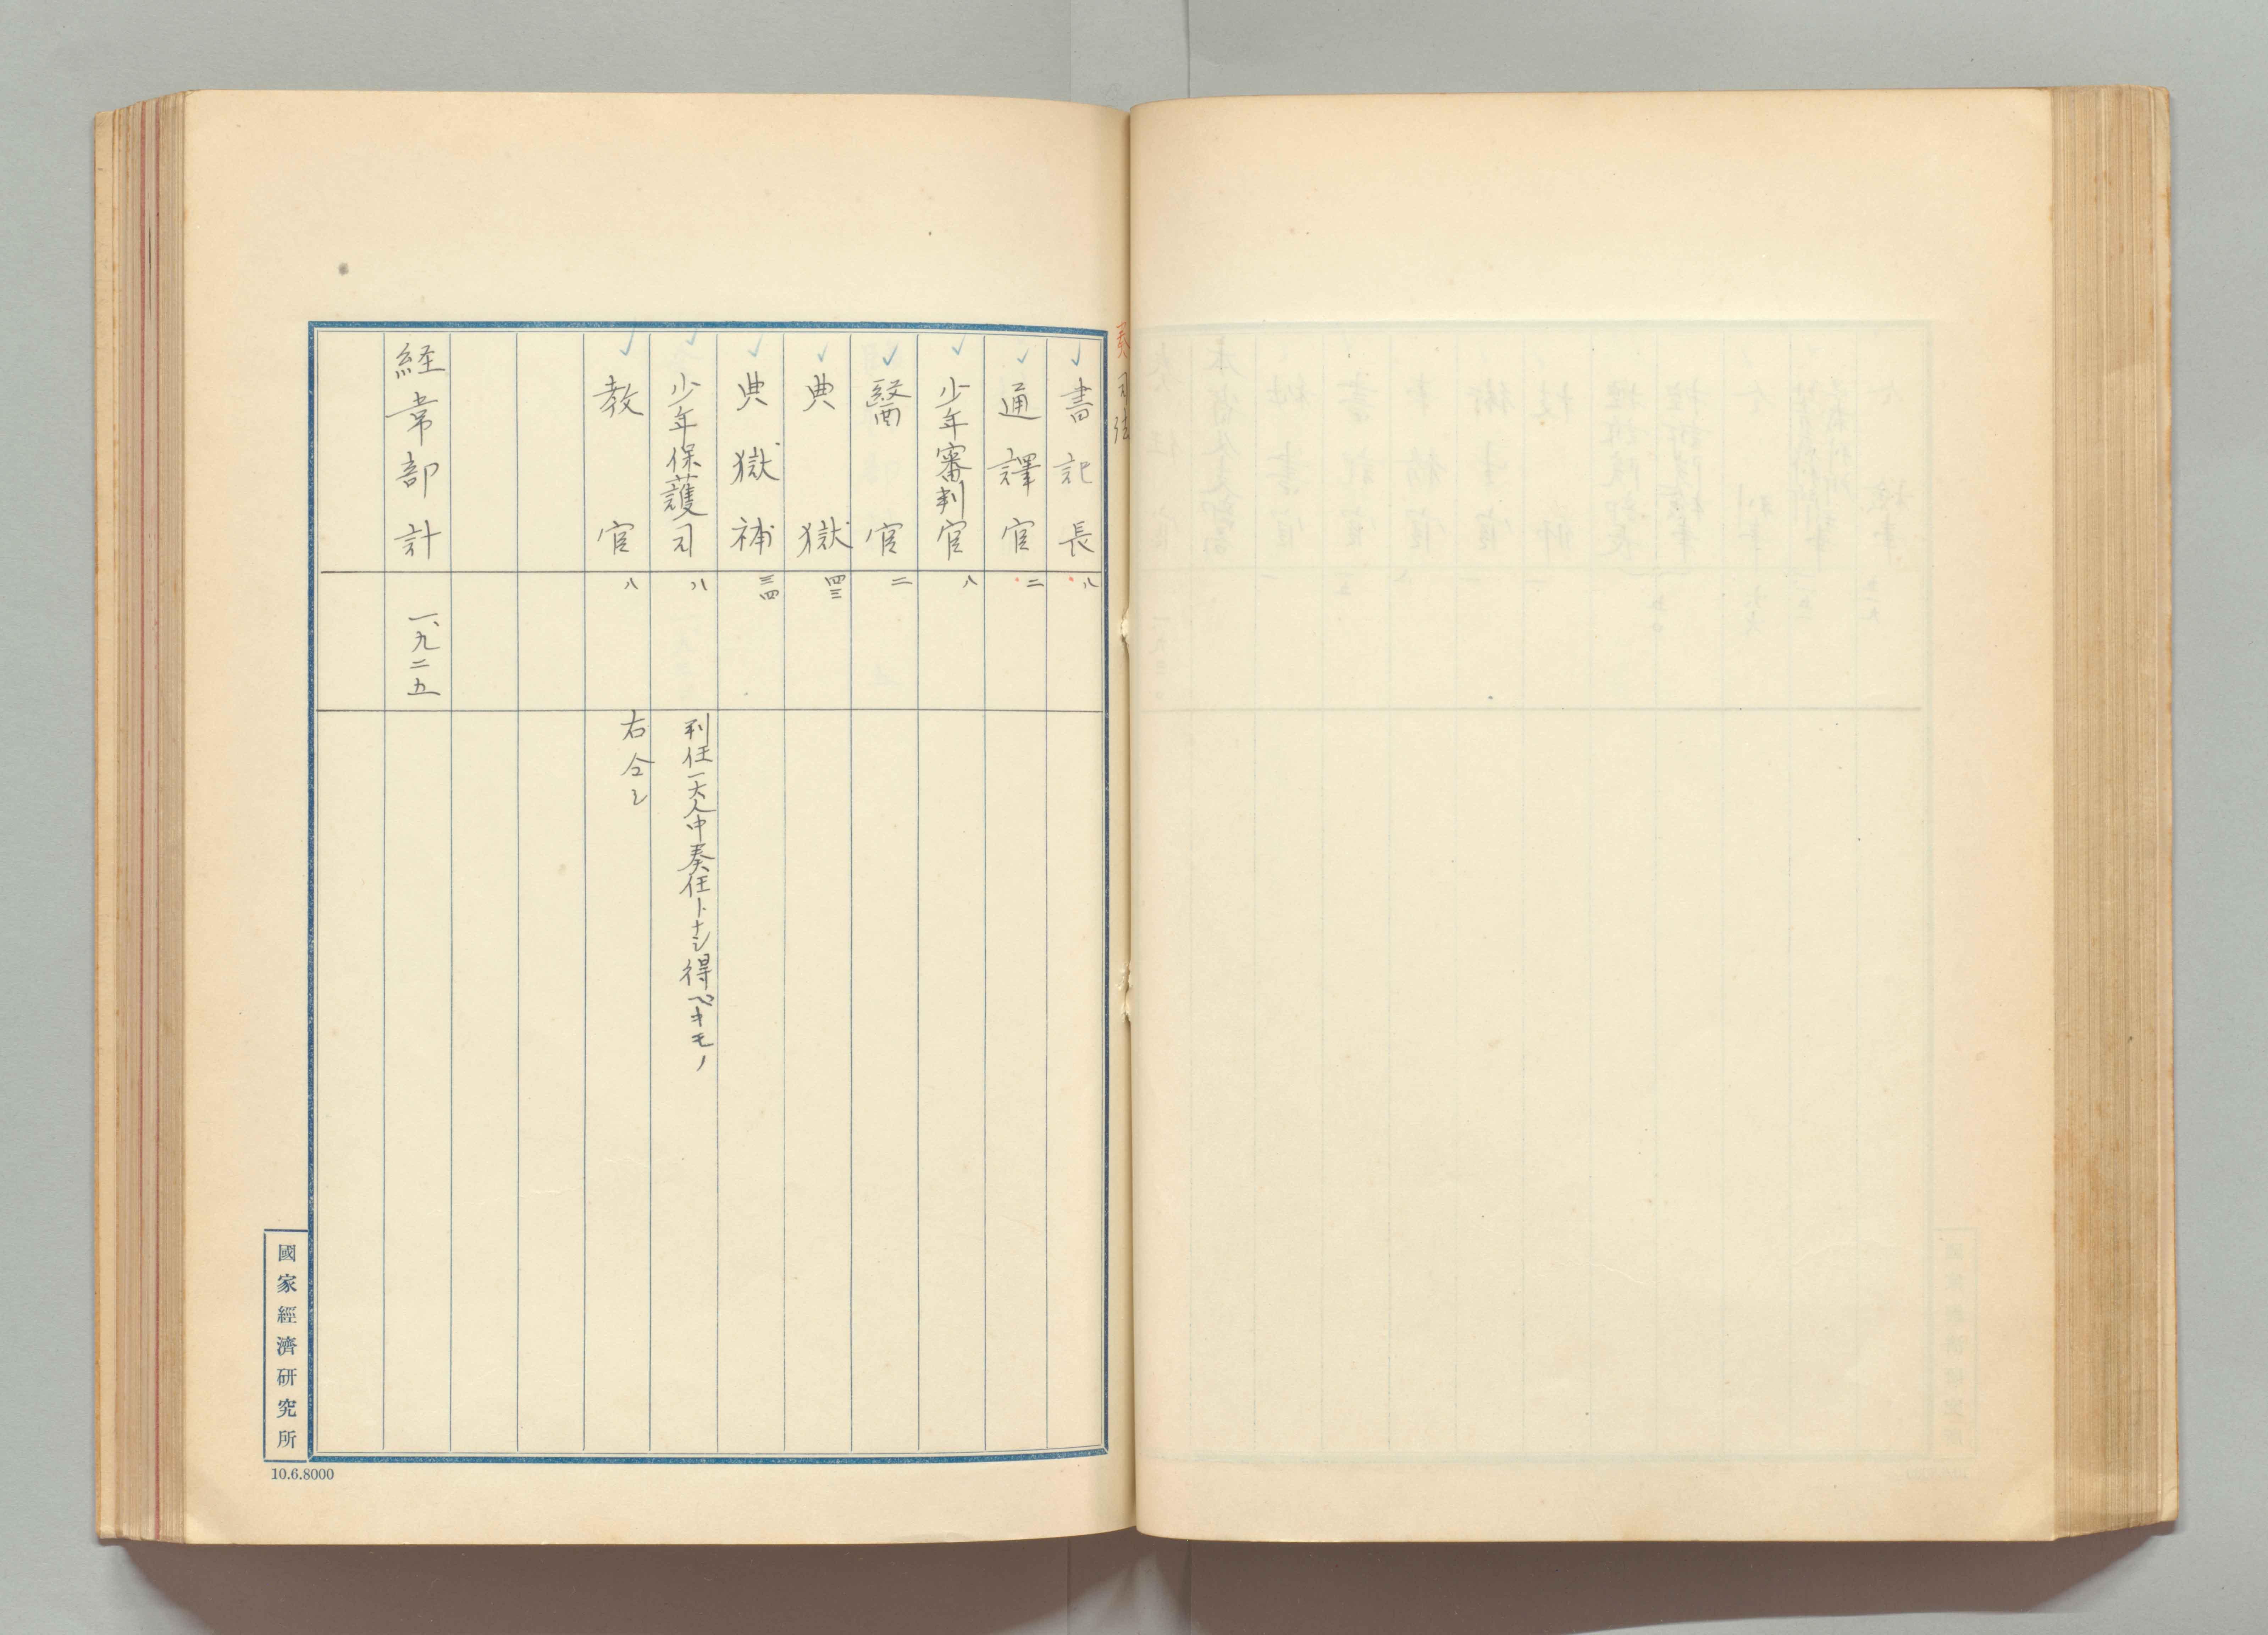 奏 司法
書記長 八
通譯官 二
少年審判官 八
醫官 二
典獄 四三
典獄補 三四
少年保護司 八 判任一六人中奏任トナシ得ベキモノ
教官 八 右仝シ
経常部計 一、九二五
國家經濟研究所
10.6.8000